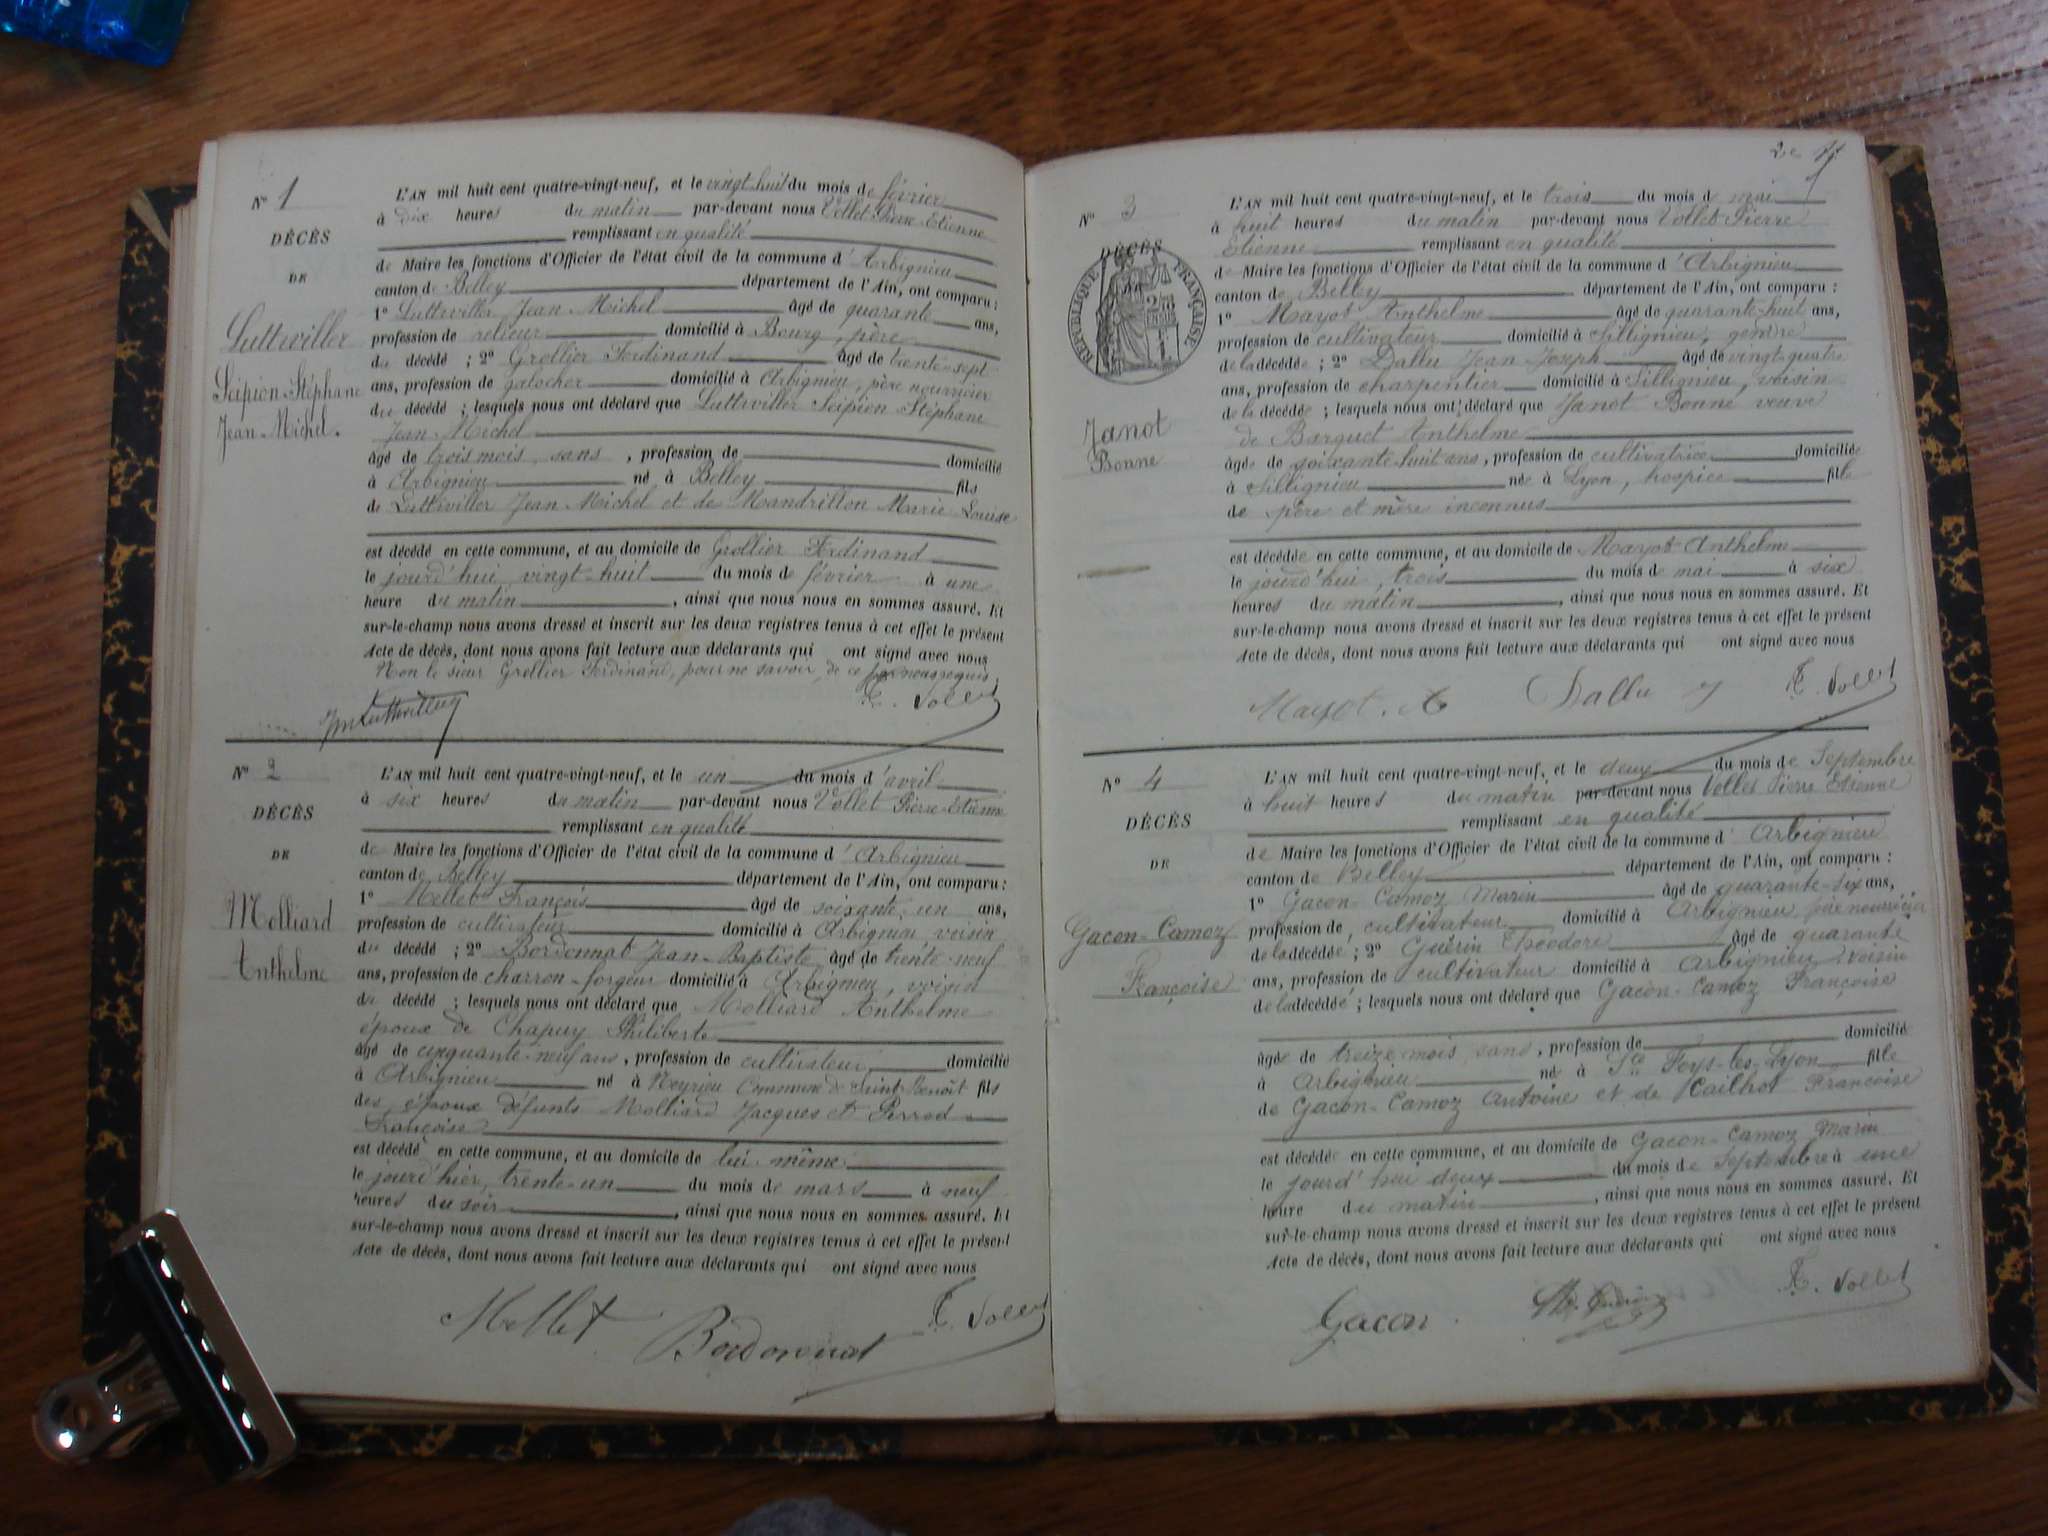 N° 1
DÉCÈS
DE
Luttwiller
Scipion-Stéphane
Jean-Michel.
L'AN mil huit cent quatre-vingt-neuf, et le vingt-huit du mois de février
à Dix heures du matin par-devant nous Vollet Pierre-Etienne
remplissant en qualité
de Maire les fonctions d'Officier de l'état civil de la commune d'Arbignieu
canton de Belley département de l'Ain, ont comparu :
1° Luttwiller Jean Michel âgé de quarante ans,
profession de relieur domicilié à Bourg, père
du décédé ; 2° Grellier Ferdinand âgé de trente-sept
ans, profession de galocher domicilié à Arbignieu, père nourricier
du décédé ; lesquels nous ont déclaré que Luttwiller Scipion-Stéphane
Jean-Michel
âgé de trois mois, sans, profession de domicilié
à Arbignieu né à Belley fils
de Luttwiller Jean Michel et de Mandrillon Marie-Louise
est décédé en cette commune, et au domicile de Grellier Ferdinand
le jourd'hui vingt-huit du mois de février à une
heure du matin, ainsi que nous nous en sommes assuré. Et
sur-le-champ nous avons dressé et inscrit sur les deux registres tenus à cet effet le présent
Acte de décès, dont nous avons fait lecture aux déclarants qui ont signé avec nous
Non le sieur Grellier Ferdinand, pour ne savoir, de ce par nous requis.
E. Vollet
N° 2
DÉCÈS
DE
Molliard
Anthelme
L'AN mil huit cent quatre-vingt-neuf, et le un du mois d'avril
à six heures du matin par-devant nous Vollet Pierre-Etienne
remplissant en qualité
de Maire les fonctions d'Officier de l'état civil de la commune d'Arbignieu
canton de Belley département de l'Ain, ont comparu :
1° Mellet François âgé de soixante-un ans,
profession de cultivateur domicilié à Arbignieu voisin
du décédé ; 2° Bordonnat Jean-Baptiste âgé de trente-neuf
ans, profession de charron-forgeur domicilié à Arbignieu, voisin
du décédé ; lesquels nous ont déclaré que Molliard Anthelme
époux de Chapuy Philiberte
âgé de cinquante-neuf ans, profession de cultivateur, domicilié
à Arbignieu né à Meyrieu Commune de Saint-Benoît fils
des époux défunts Molliard Jacques et Perrod
Françoise
est décédé en cette commune, et au domicile de lui-même
le jourd'hier, trente-un du mois de mars à neuf
heures du soir, ainsi que nous nous en sommes assuré. Et
sur-le-champ nous avons dressé et inscrit sur les deux registres tenus à cet effet le présent
Acte de décès, dont nous avons fait lecture aux déclarants qui ont signé avec nous
Mellet Bordonnat E. Vollet
2e
N° 3
DÉCÈS
RÉPUBLIQUE FRANÇAISE
Janot
Bonne
L'AN mil huit cent quatre-vingt-neuf, et le trois du mois de mai
à huit heures du matin par-devant nous Vollet Pierre
Etienne remplissant en qualité
de Maire les fonctions d'Officier de l'état civil de la commune d'Arbignieu
canton de Belley département de l'Ain, ont comparu :
1° Mayot Anthelme âgé de quarante-huit ans,
profession de cultivateur domicilié à Sillignieu, gendre
de la décédée ; 2° Dallu Jean Joseph âgé de vingt-quatre
ans, profession de charpentier domicilié à Sillignieu, voisin
de la décédée ; lesquels nous ont déclaré que Janot Bonne veuve
de Barquet Anthelme
âgée de soixante-huit ans, profession de cultivatrice domiciliée
à Sillignieu née à Lyon, hospice fille
de père et mère inconnus
est décédée en cette commune, et au domicile de Mayot Anthelme
le jourd'hui, trois du mois de mai à six
heures du matin, ainsi que nous nous en sommes assuré. Et
sur-le-champ nous avons dressé et inscrit sur les deux registres tenus à cet effet le présent
Acte de décès, dont nous avons fait lecture aux déclarants qui ont signé avec nous
Mayot. A Dallu J E. Vollet
N° 4
DÉCÈS
DE
Gacon-Camoz
Françoise
L'AN mil huit cent quatre-vingt-neuf, et le deux du mois de Septembre
à huit heures du matin par-devant nous Vollet Pierre Etienne
remplissant en qualité
de Maire les fonctions d'Officier de l'état civil de la commune d'Arbignieu
canton de Belley département de l'Ain, ont comparu :
1° Gacon-Camoz Marin âgé de quarante-six ans,
profession de cultivateur domicilié à Arbignieu père nourricier
de la décédée ; 2° Guérin Théodore âgé de quarante
ans, profession de cultivateur domicilié à Arbignieu voisin
de la décédée ; lesquels nous ont déclaré que Gacon-Camoz Françoise
âgée de treize mois, sans, profession de domicilié
à Arbignieu née à Ste Foys-les-Lyon fille
de Gacon-Camoz Antoine et de Cailhot Françoise
est décédée en cette commune, et au domicile de Gacon-Camoz Marin
le jourd'hui deux du mois de Septembre à une
heure du matin, ainsi que nous nous en sommes assuré. Et
sur-le-champ nous avons dressé et inscrit sur les deux registres tenus à cet effet le présent
Acte de décès, dont nous avons fait lecture aux déclarants qui ont signé avec nous
Gacon. Th. Guérin E. Vollet